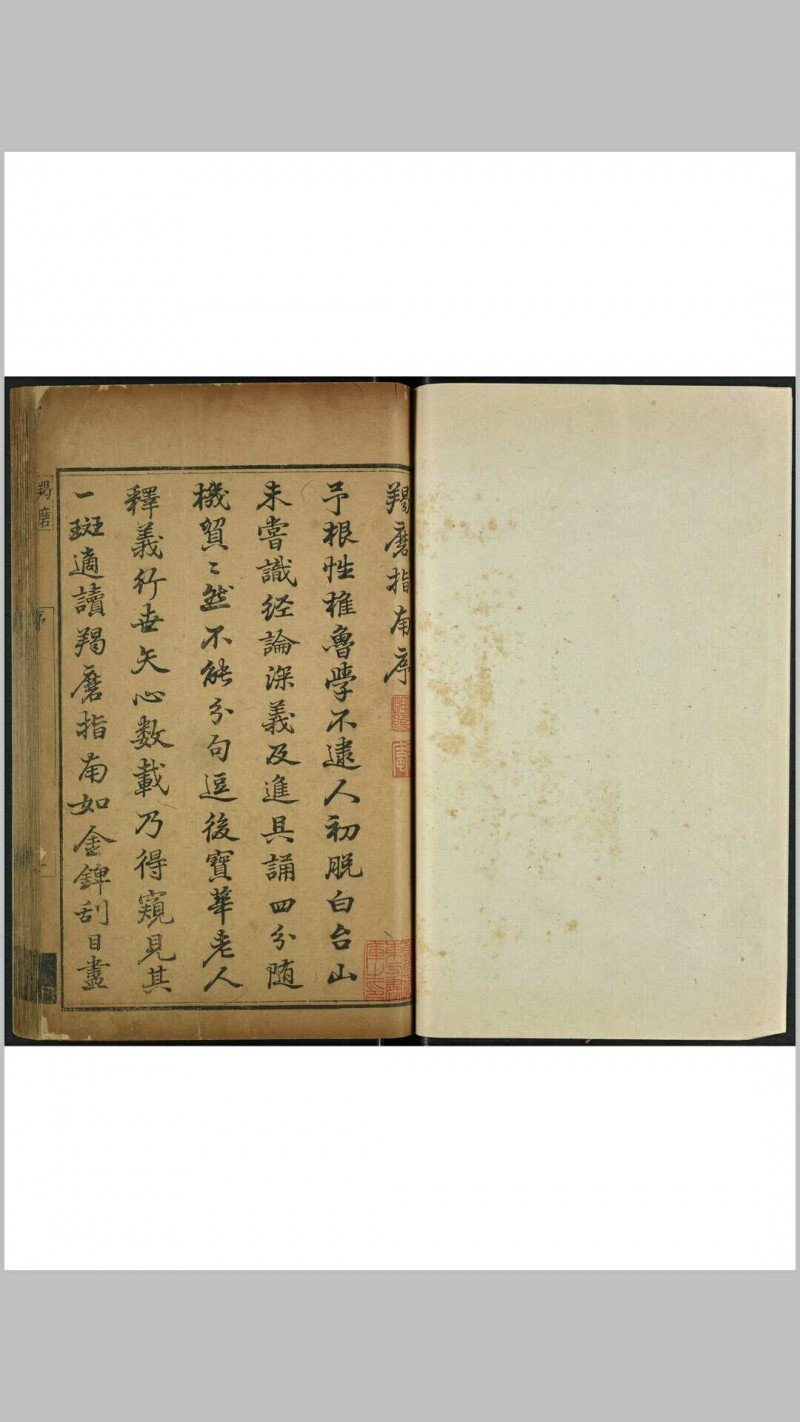 羯磨指南序
予根性椎魯學不逮人初脫白台山
未嘗識經論深義及進具誦四分随
機貿〻然不能分句逗後寶華老人
釋義行世矢心数載乃得窺見其
一斑適讀羯磨指南如金錍刮目盡
羯磨
序